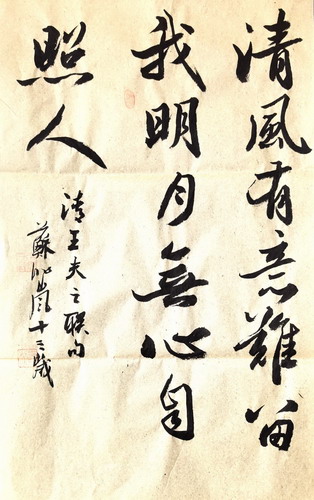 清風有意難留
我明月無心自
照人
清王夫之联句
蘇十三歲